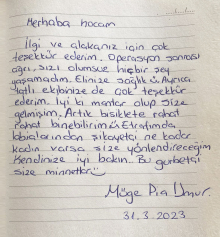 Merhaba hocam
İlgi ve alakanız için çok
teşekkür ederim. Operasyon sonrası
ağrı, sızı olumsuz hiçbir şey
yaşamadım. Elinize sağlık :) Ayrıca
tatlı ekibinize de çok teşekkür
ederim. İyi ki mantar olup size
gelmişim. Artık bisiklete rahat
rahat binebilirim :) Etrafımda
labialarından şikayetçi ne kadar
kadın varsa size yönlendireceğim
Kendinize iyi bakın. Bu gurbetçi
size minnettar :)
Müge Pia
31.3.2023